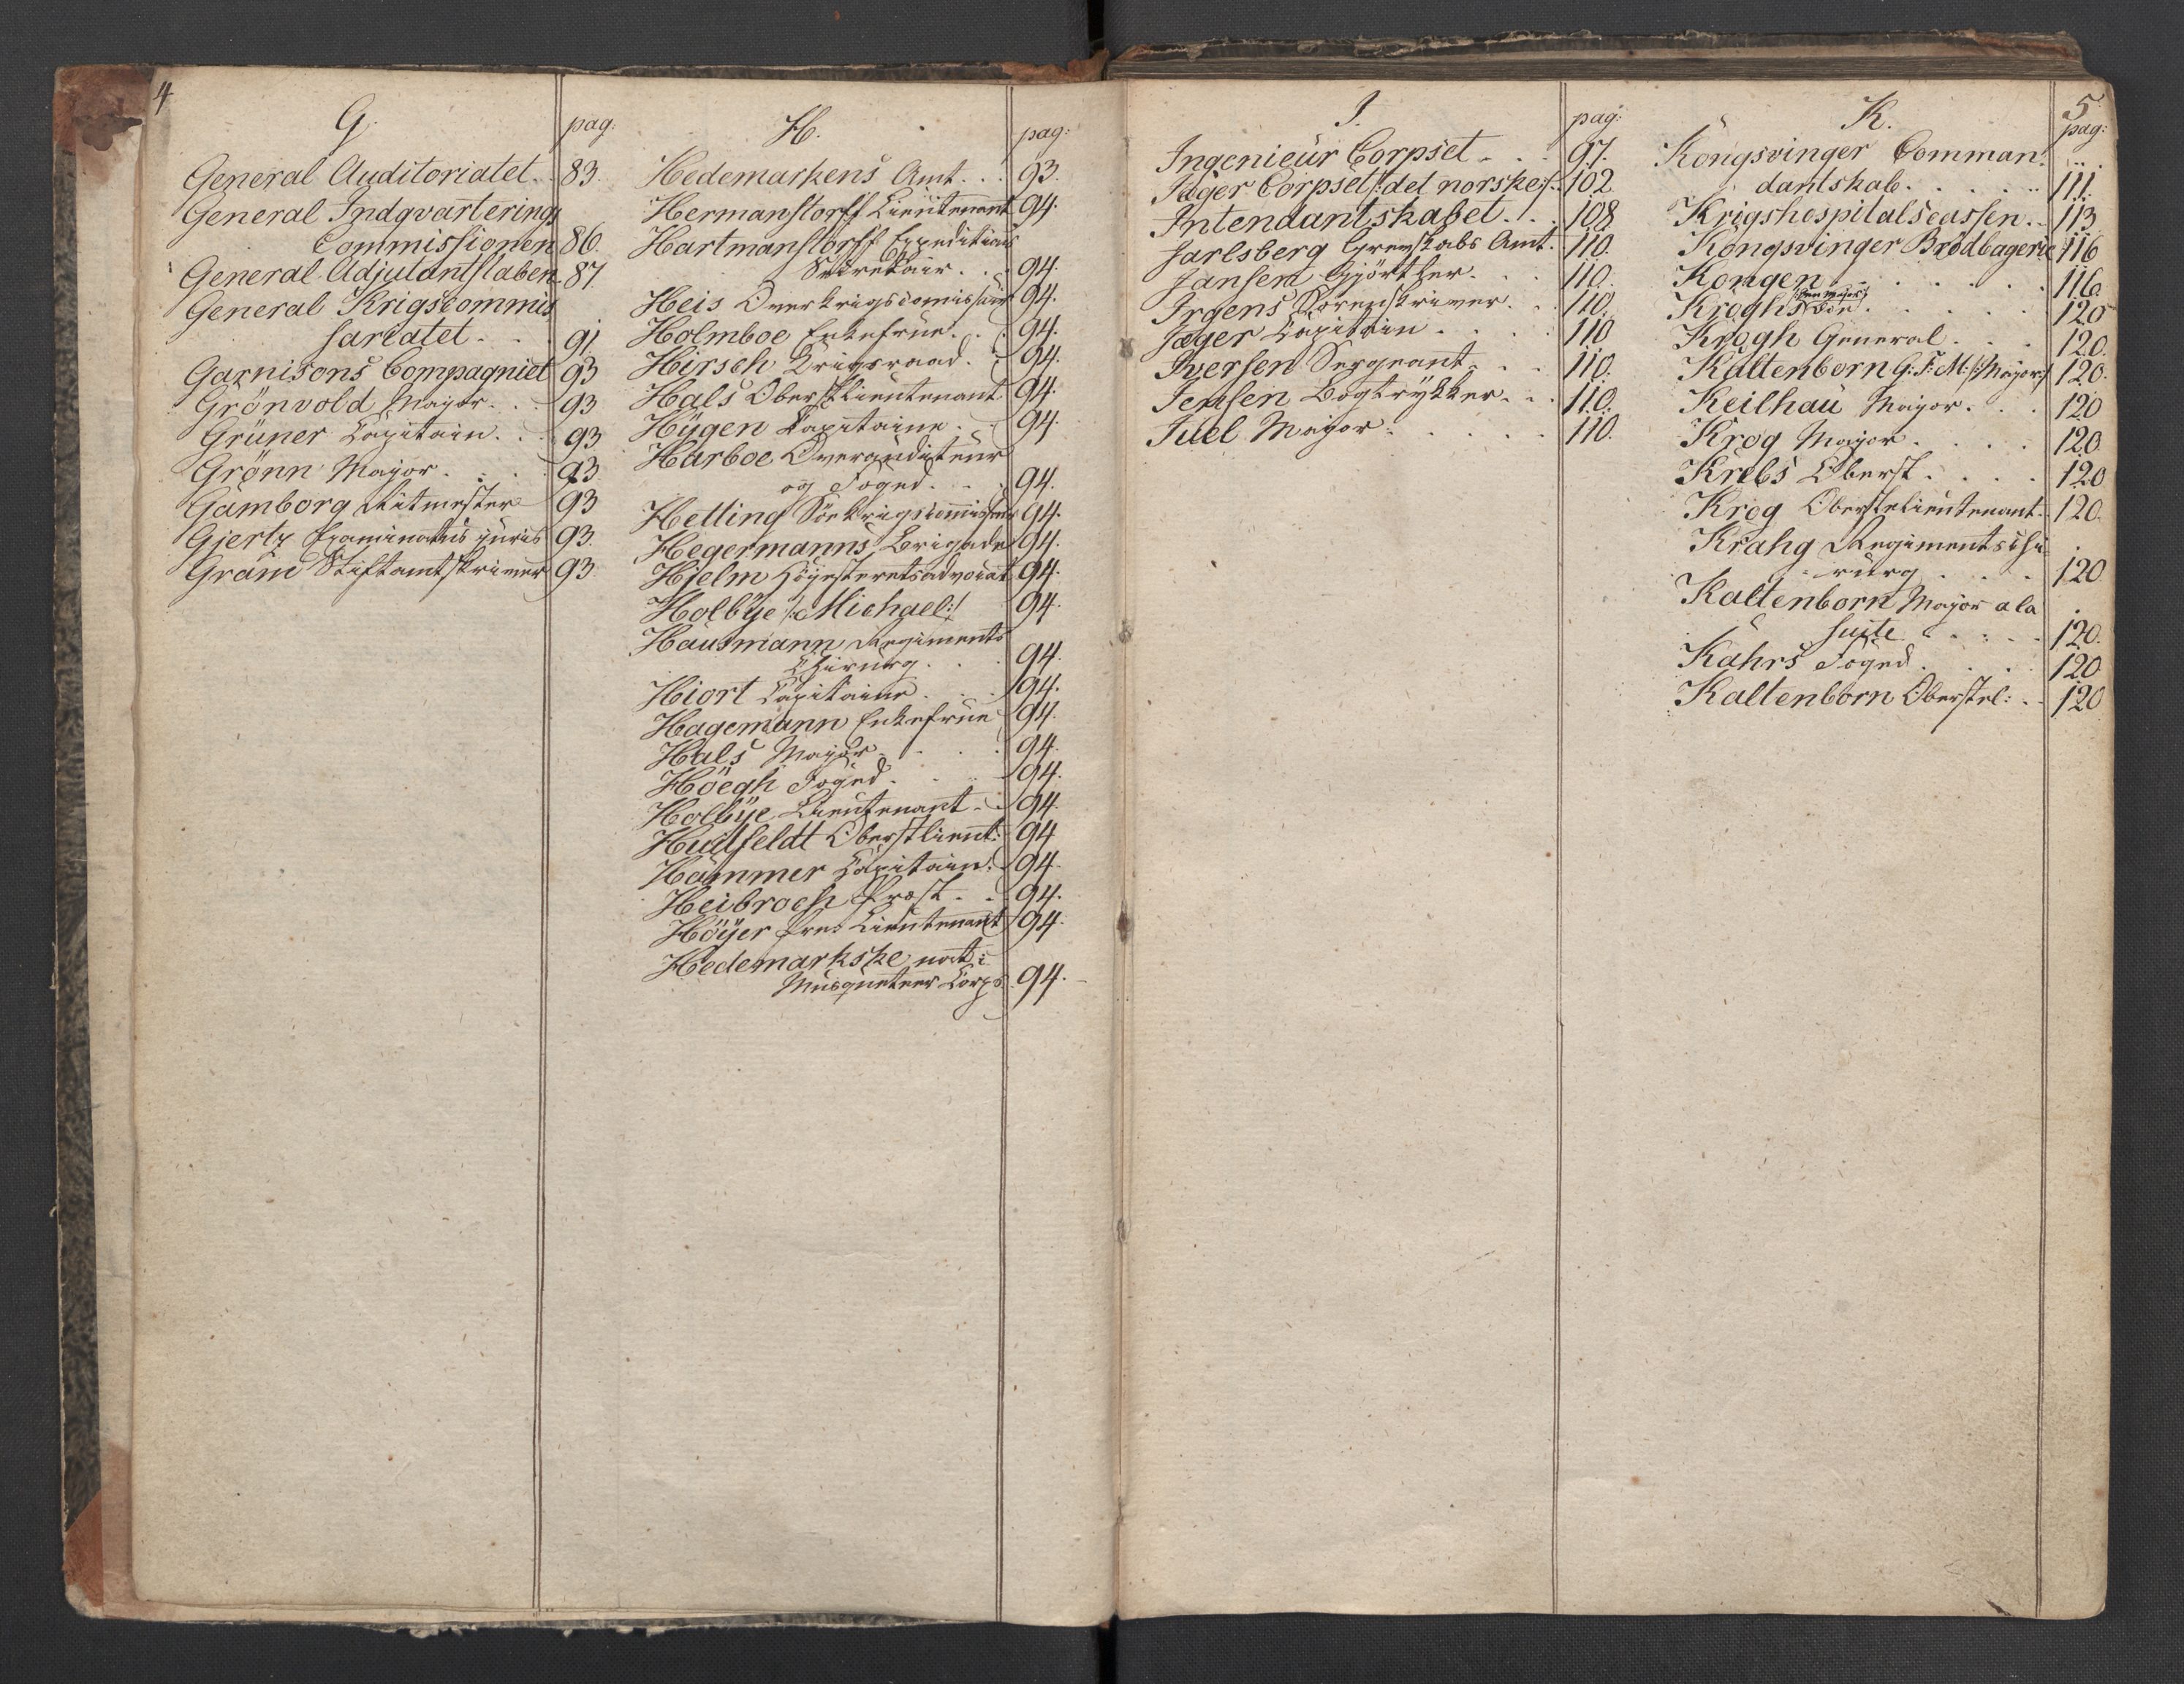 4
G.
pag:
General Auditoriatet. . 83.
General Indqvarterings
Commissionen 86.
General Adjutantstaben. 87.
General Krigscommis
sariatet. . . 91
Garnisons Compagniet 93
Grönvold Major. . . 93
Grüner Capitain. . . 93
Grönn Major. . . . 93.
Gamborg Ritmester 93
Gjertz Examinatus juris 93.
Gram Stiftamtskriver 93
H.
pag:
Hedemarkens Amt. . . 93.
Hermanstorff Lieutenant 94.
Hartmanstorff Expeditions
Secretair. . . 94.
Heis Overkrigscomissair 94.
Holmboe Enkefrue. . . 94.
Hirsch Krigsraad. . 94.
Hals Oberstlieutenant 94.
Hügen Capitaine. . . 94.
Harboe Overauditeur
og Foged. . . 94.
Helling Söekrigscommissair 94.
Hegermanns Brigade 94.
Hjelm Höyesteretsadvocat 94.
Holbÿe /:Michael:/ 94.
Hausmann Regiments
Chirurg. . . 94.
Hiort Capitaine. . . 94.
Hagemann Enkefrue 94.
Hals Major. . . . 94.
Höegh Foged. . . . 94.
Holbÿe Lieutenant. . 94.
Huitfeldt Oberstlieut: 94
Hammer Capitain. . 94.
Heibroch Præst. . . 94.
Höÿer Pre: Lieutenant 94.
Hedemarkske nat:
Musqueteer Corps. 94.
I.
pag:
Ingenieur Corpset. . . 97.
Jæger Corpset /:det norske:/. 102.
Intendantskabet. . . 108
Jarlsberg Grevskabs Amt. 110.
Jansen Gjörtler. . . 110.
Irgens Sorenskriver. . 110.
Jæger Capitain. . . . 110
Iversen Sergeant. . . 110.
Jensen Bogtrÿkker. . . 110.
Juel Major. . . . . 110.
5
K.
pag:
Kongsvinger Comman-
dantskab. . . . . 111.
Krigshospitalscassen. . 113
Kongsvinger Brödbagerie 116
Kongen. . . . . . 116.
/:Gen: Major:/
Kroghs Böe. . . . . 120
Krogh General. . . 120.
Kaltenborn G: F: M: /:Major:/ 120.
Keilhau Major. . . 120
Krog Major. . . . 120.
Krebs Oberst. . . . 120
Krog Oberstelieutenant. 120.
Krahg Regimentschi-
rurg. . . . 120
Kaltenborn Major a la
suite. . . . . 120.
Kahrs Foged. . . . 120
Kaltenborn Oberstel: . . 120